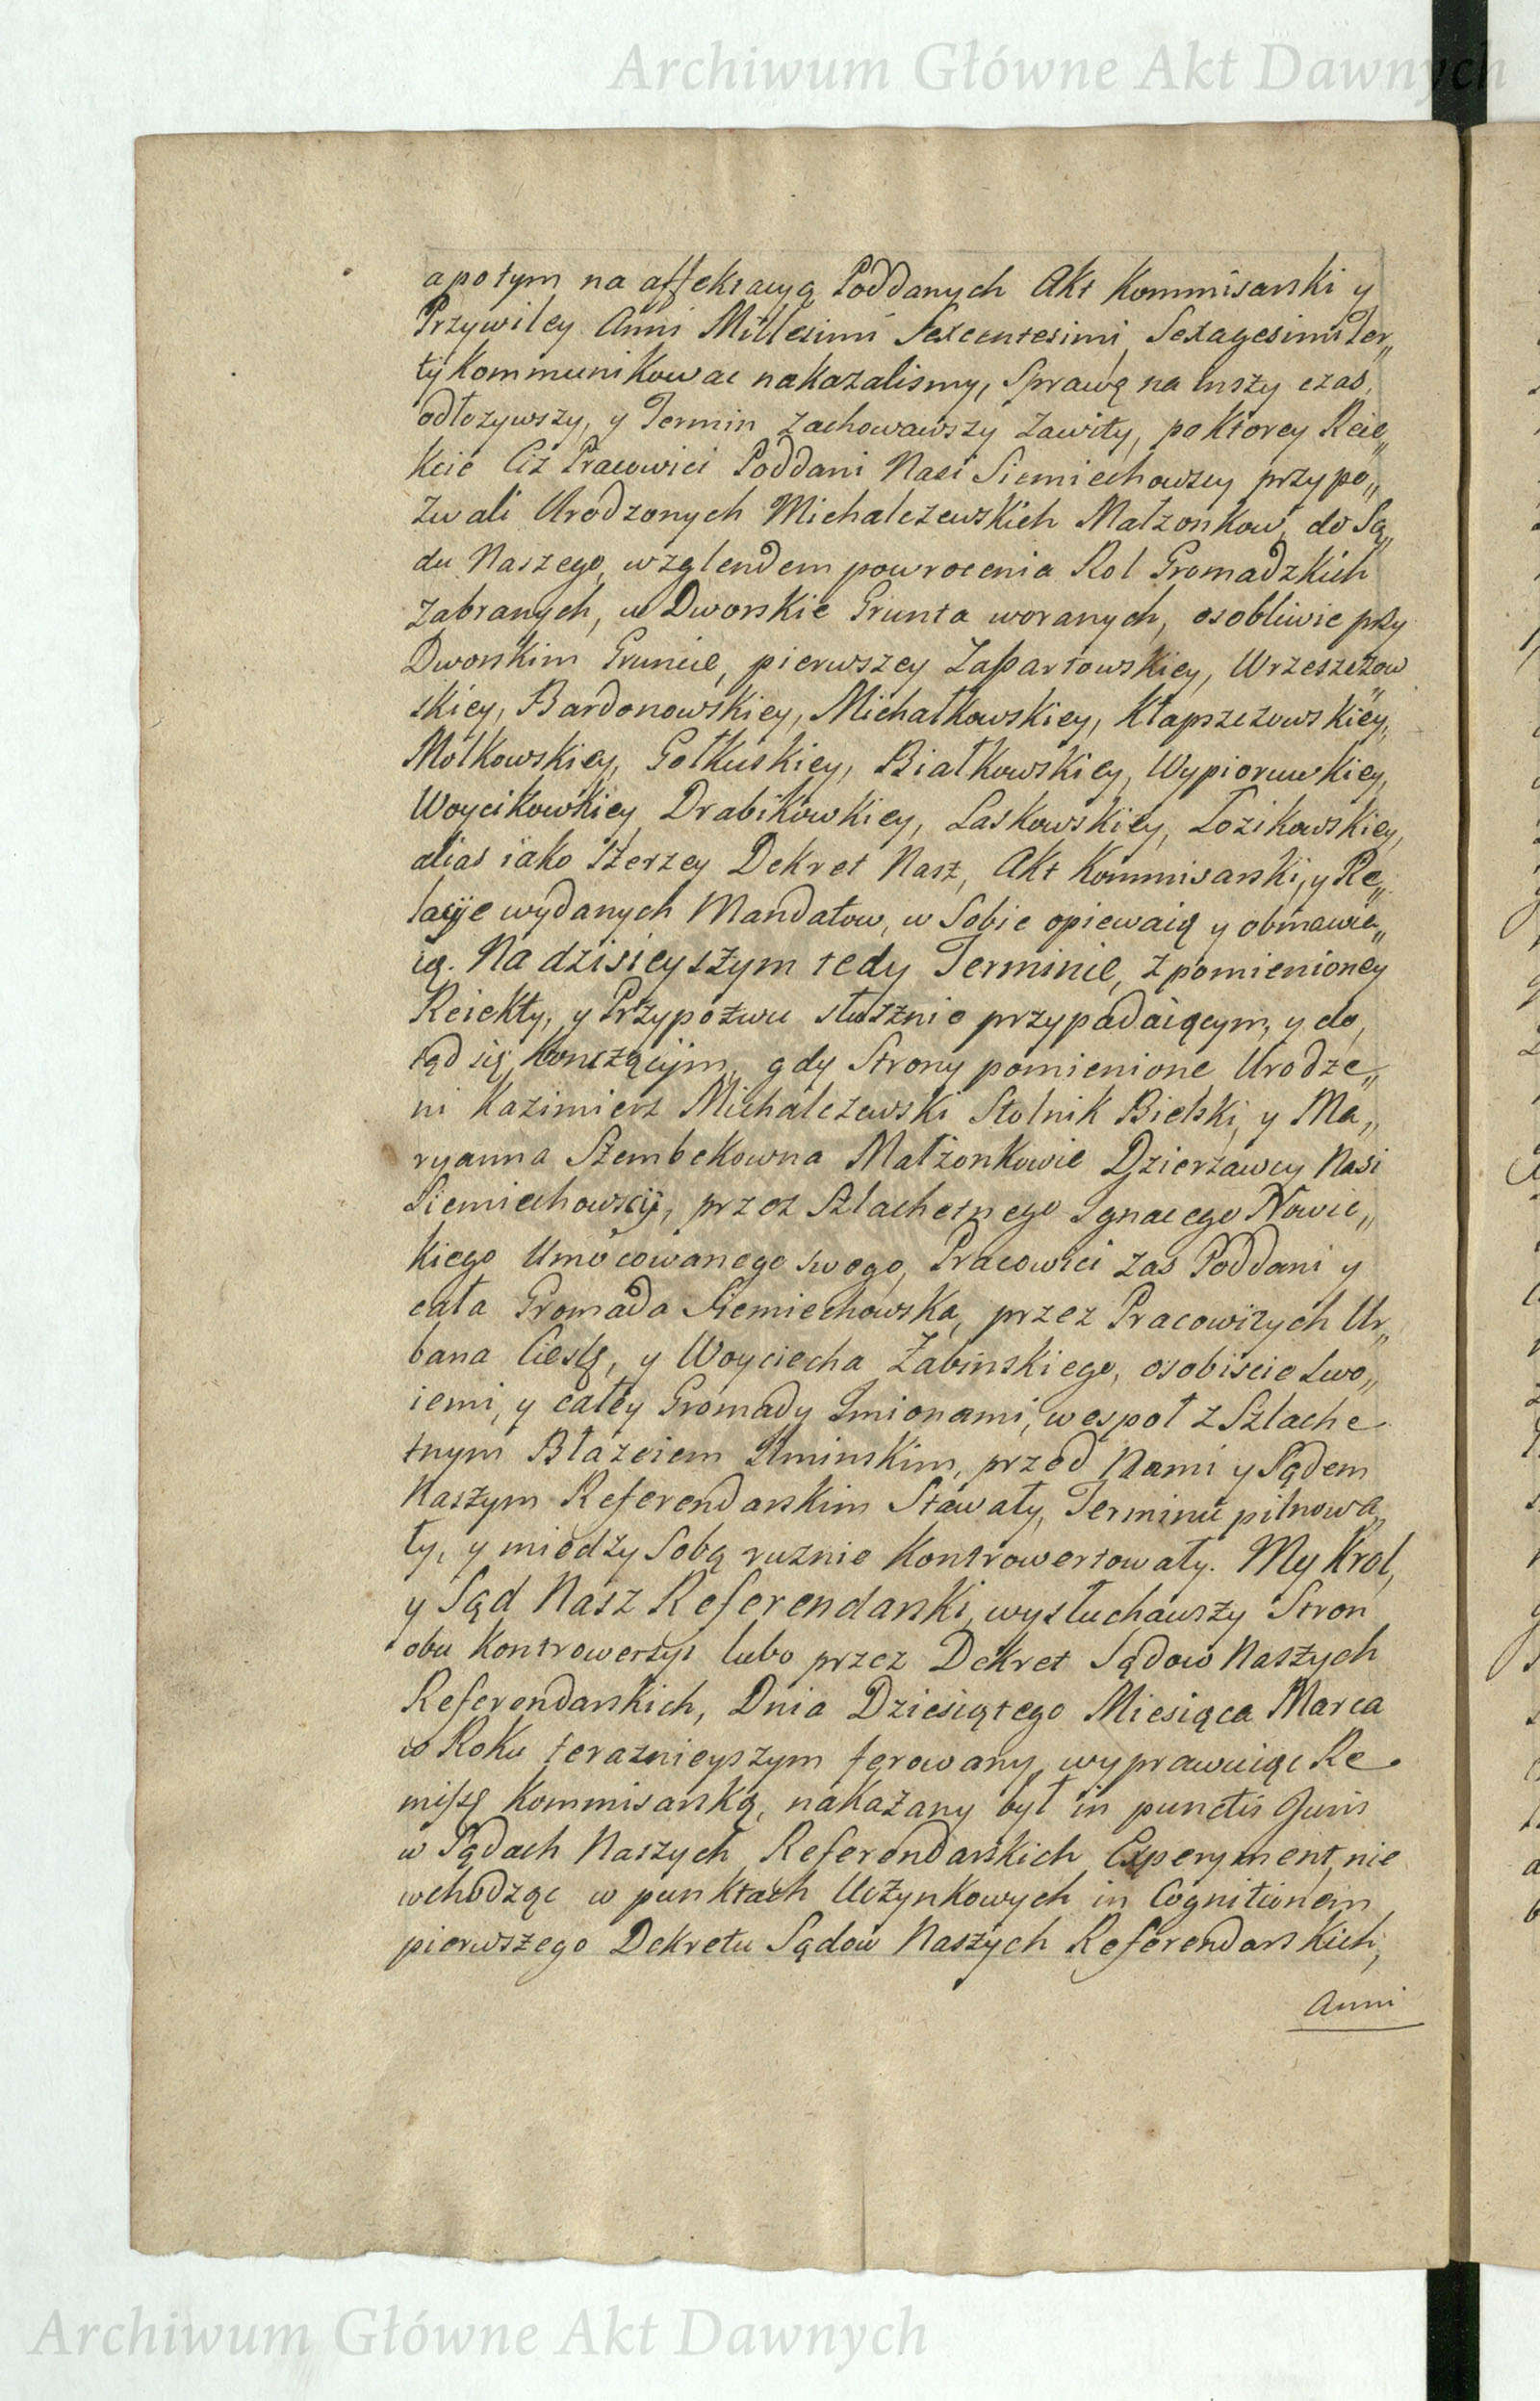 Archiwum Główne Akt Dawnych
apotym na affektacyą Poddanych Akt Kommisarski y
Przywiley Anni Millesimi Sexcentesimi Sexagesimi Ter„
ty Kommunikowac nakazalismy, Sprawę na inszy czas,
odłozywszy, y Termin zachowawszy Zawity, po Ktorey Reie„
kcie Ciż Pracowici Poddani Nasi Siemiechowscy przypo„
zwali Urodzonych Michalczewskich Małzonkow, do Są„
du Naszego, wzglendem powrocenia Rol Gromadzkich
zabranych, w Dworskie Grunta woranych, osobliwie przy
Dworskim Gruncie, pierwszey Zapartowskiey, Wrzeszczow
skiey, Bardonowskiey, Michałkowskiey, Kłapszczowskiey,
Molkowskiey, Gołkuskiey, Białkowskiey, Wypioruwkiey,
Woycikowkiey, Drabikowkiey, Laskowskiey, Łozikowskiey,
alias iako szerzey Dekret Nasz, Akt Kommisarski, y Re„
lacyje wydanych Mandatow, w Sobie opiewaią y obmawia„
ią. Na dzisieyszym tedy Terminie, z pomienioney
Reiekty, y Przypozwu słusznie przypadaiącym, y do,
tąd się konczącym, gdy Strony pomienione Urodze„
ni Kazimierz Michalczewski Stolnik Bielski, y Ma„
ryanna Szembekowna Małżonkowie Dzierzawcy Nasi
Siemiechowscy, przez Szlachetnego Ignacego Nowic„
kiego Umocowanego swego, Pracowici zas Poddani y
cała Gromada Siemiechowska, przez Pracowitych Ur„
bana Cieslę, y Woyciecha Zabinskiego, osobiscie Swo„
iemi, y całey Gromady Imionami, wespoł z Szlache
tnym Błazeiem Uminskim, przed Nami y Sądem
Naszym Referendarskim Stawały, Terminu pilnowa„
ły, y miedzy Sobą ruznie Kontrowertowały. My Krol,
y Sąd Nasz Referendarski, wysłuchawszy Stron
obu Kontrowersyi lubo przez Dekret Sądow Naszych
Referendarskich, Dnia Dziesiątego Miesiąca Marca
w Roku teraznieyszym ferowany, wyprawuiąc Re
missę Kommisarską, nakazany był in punctis Juris
w Sądach Naszych Referendarskich Experyment, nie
wchodząc w punktach Uczynkowych in Cognitionem
pierwszego Dekretu Sądow Naszych Referendarskich,
Anni
Archiwum Główne Akt Dawnych